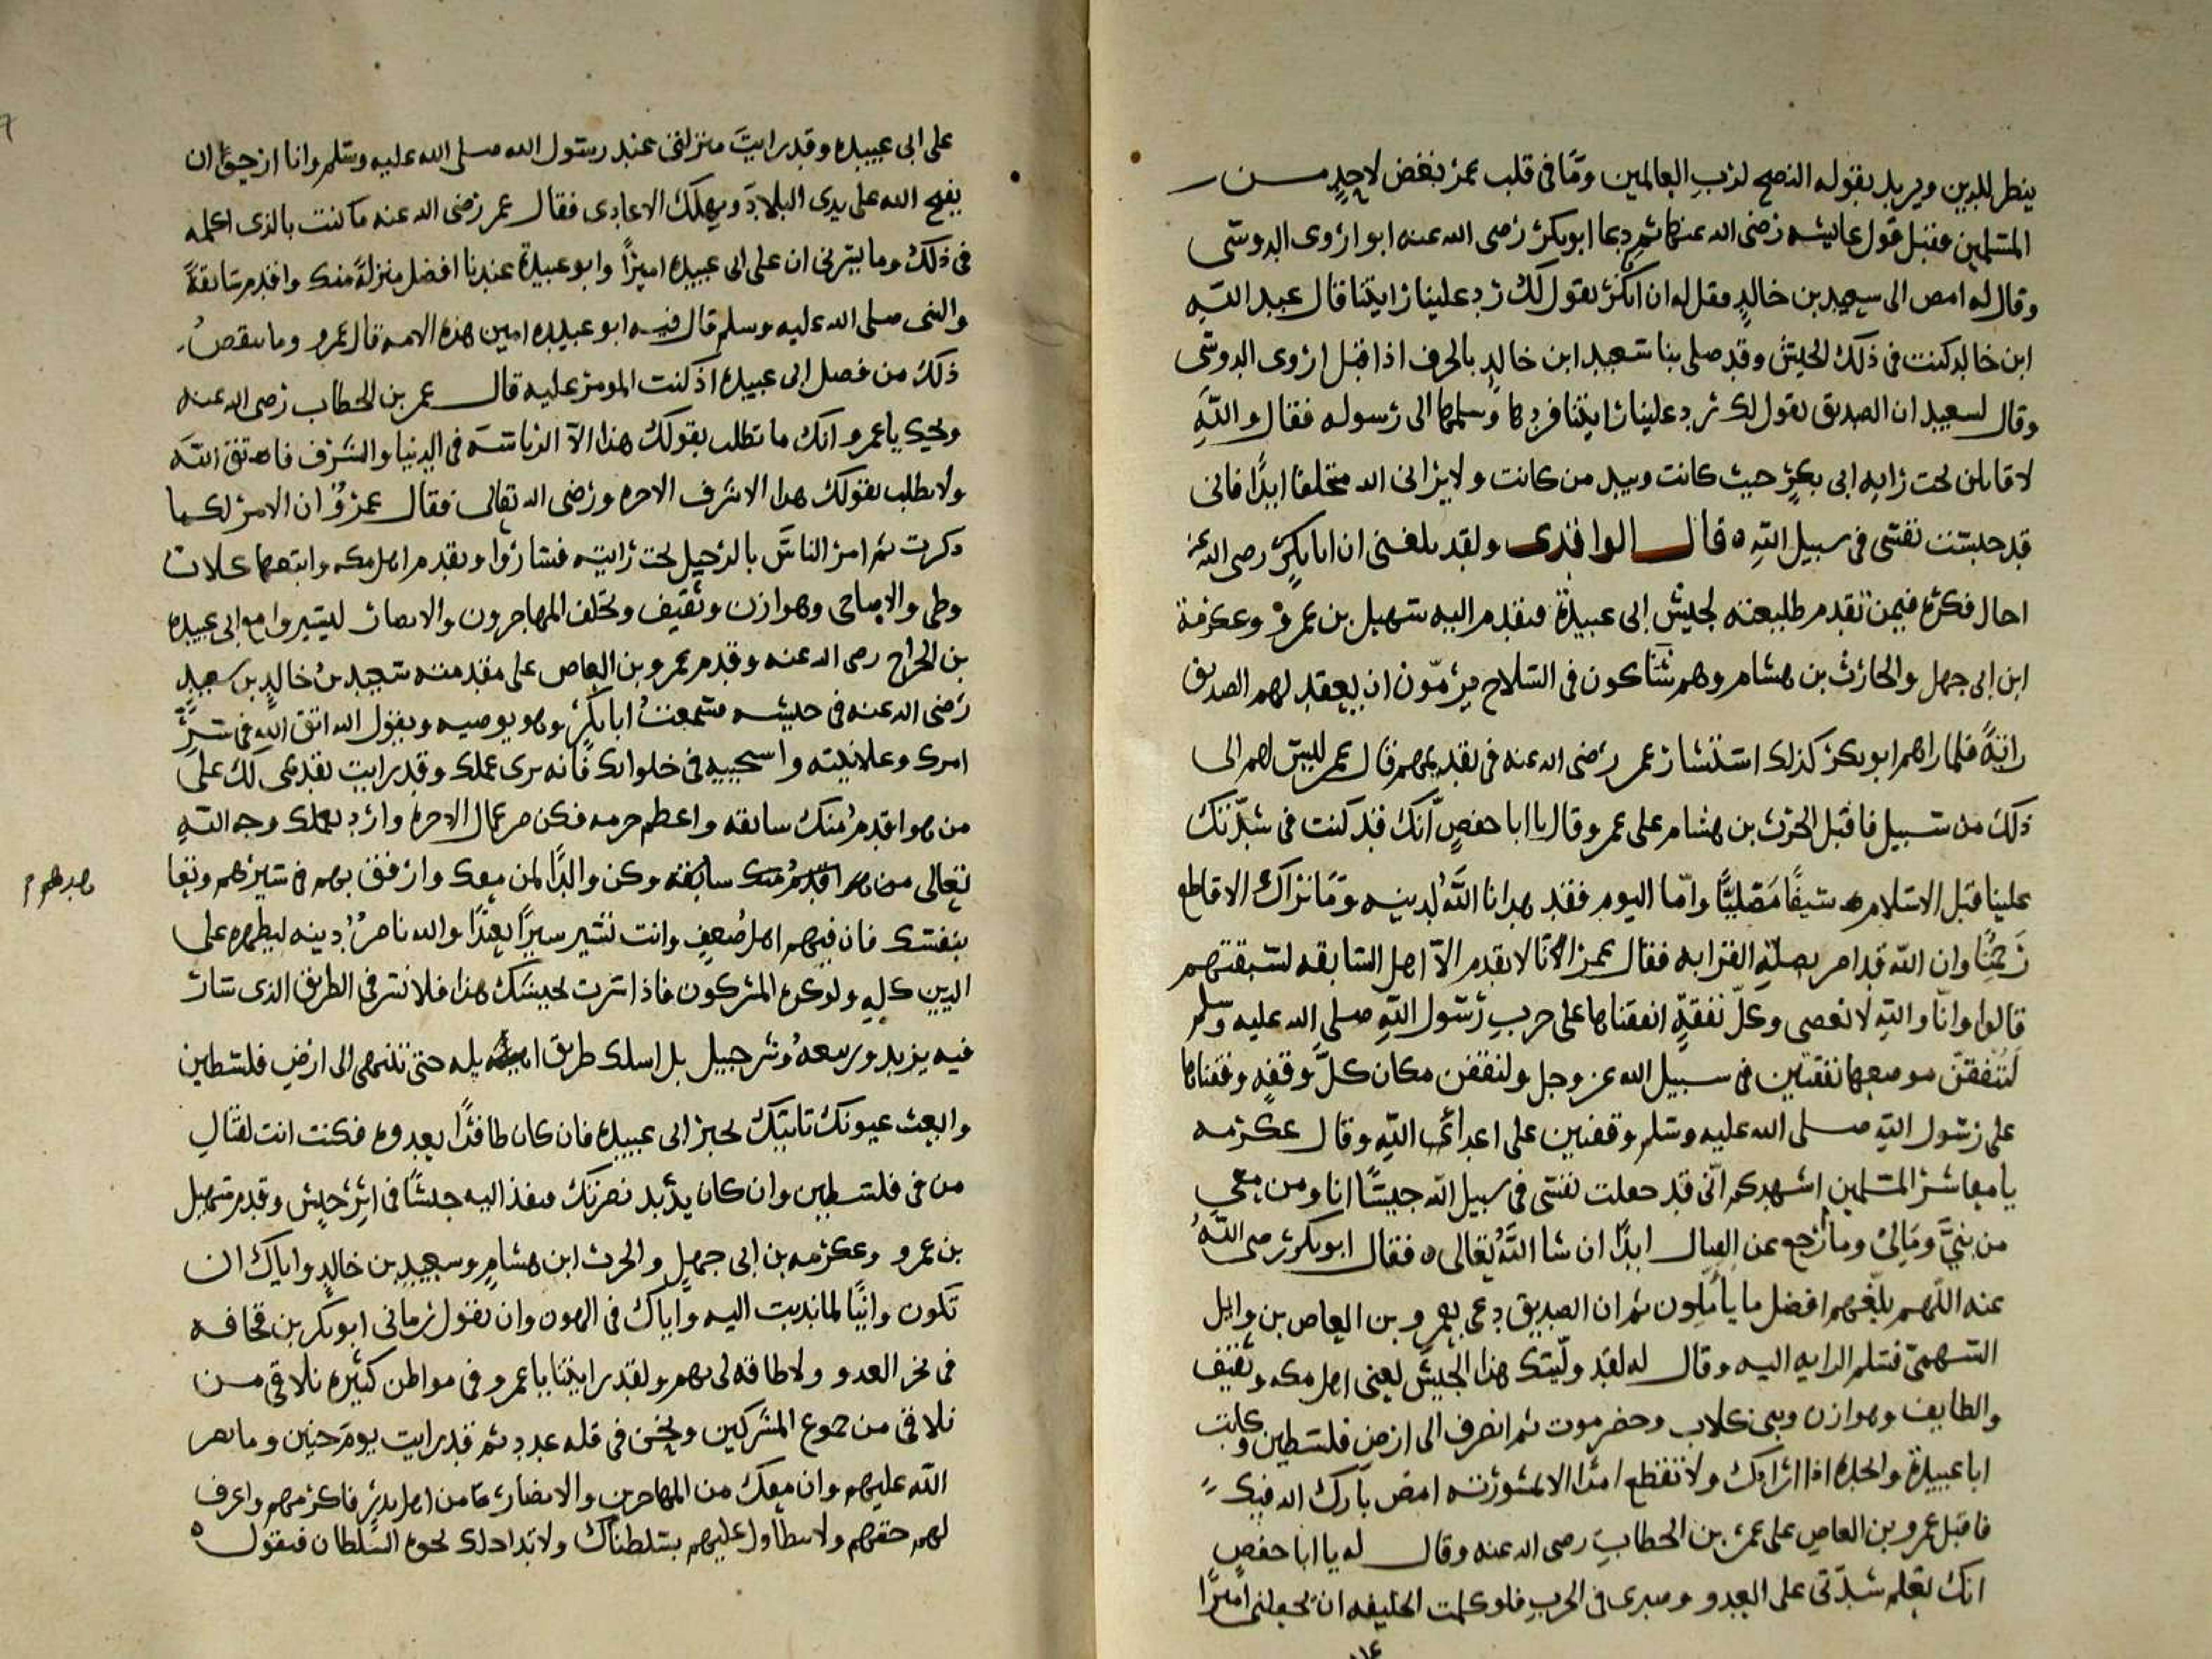 ينظر للدين ويريد بقوله النصح لرب العالمين وما في قلب عمر بغض لاحد من
المسلمين فقبل قول عايشه رضي الله عنها ثم دعا ابو بكر رضي الله عنه ابو اروى الدوسي
وقال له امض الى سعيد بن خالد فقل له ان ابا بكر يقول لك رد علينا رايتنا قال عبد الله
ابن خالد كنت في ذلك الجيش وقد صلى بنا سعيد ابن خالد بالجرف اذ اقبل اروى الدوسي
وقال لسعيد ان الصديق يقول لك رد علينا رايتنا فردها وسلمها الى رسوله فقال والله
لاقاتلن تحت رايه ابي بكر حيث كانت وبيد من كانت ولا يراني الله متخلفا ابدًا فاني
قد حبست نفسي في سبيل الله ه قال الواقدي ولقد بلغني ان ابا بكر رضي الله عنه
اجال فكره فيمن تقدم طليعته لجيش ابي عبيدة فتقدم اليه سهيل بن عمرو وعكرمة
ابن ابي جهل والحارث بن هشام وهم شاكون في السلاح يرمون ان يعقد لهم الصديق
رايةً فلما راهم ابو بكر كذلك استشار عمر رضي الله عنه في تقديمهم فقال عمر ليس لهم الى
ذلك من سبيل فاقبل الحرث بن هشام على عمر وقال يا ابا حفص انك قد كنت في شدتك
علينا قبل الاسلام سيفًا مصلبًا واما اليوم فقد هدانا الله لدينه وما نراك الا قاطع
رحمنا وان الله قد امر بصلة القرابه فقال عمر انا لا نقدم الا اهل السابقه لسبقتهم
قالوا وانا والله لا نعصى وكل نفقةٍ انفقناها على حرب رسول الله صلى الله عليه وسلم
لننفقن موضعها نفقتين في سبيل الله عز وجل ولنقفن مكان كل وقفهٍ وقفناها
على رسول الله صلى الله عليه وسلم وقفتين على اعداى الله وقال عكرمه
يا معاشر المسلمين اشهدكم اني قد جعلت نفسي في سبيل الله حبيسًا انا ومن معي
من بني ومالي وما ارجع عن القتال ابدًا ان شا الله تعالى ه فقال ابو بكر رضي الله
عنه اللهم بلغهم افضل ما يأملون ثم ان الصديق دعى بعمرو بن العاص بن وايل
السهمي فسلم الرايه اليه وقال له لقد وليتك هذا الجيش يعني اهل مكه وثقيف
والطايف وهوازن وبني كلاب وحضرموت ثم انصرف الى ارض فلسطين وكاتب
ابا عبيدة وانجده اذا ارادك ولا تقطع امرًا الا بمشورته امض بارك الله فيك
فاقبل عمرو بن العاص على عمر بن الخطاب رضي الله عنه وقال له يا ابا حفص
انك تعلم شدتي على العدو وصبري في الحرب فلو كلمت الخليفه ان يجعلني اميرًا
على ابي عبيده وقد رايت منزلتي عند رسول الله صلى الله عليه وسلم وانا ارجوا ان
يفتح الله على يدي البلاد ويهلك الاعادي فقال عمر رضي الله عنه ما كنت بالذي اكلمه
في ذلك وما يسرني ان على ابي عبيده اميرًا وابو عبيدة عندنا افضل منزلة منك واقدم سابقةً
والنبي صلى الله عليه وسلم قال فيه ابو عبيده امين هذه الامه قال عمرو وما ينقص
ذلك من فضل ابي عبيده اذ كنت المومر عليه قال عمر بن الخطاب رضي الله عنه
ويحك يا عمرو انك ما تطلب بقولك هذا الا الرياسه في الدنيا والشرف فاتق الله
ولا تطلب بقولك هذا الا شرف الاخره ورضى الله تعالى فقال عمرو ان الامر لكما
ذكرت ثم امر الناس بالرحيل تحت رايته فساروا وتقدم اهل مكه واتبعها كلاب
وطي والاصاحي وهوازن وثقيف وتخلف المهاجرون والانصار ليسيروا مع ابي عبيده
بن الجراح رضي الله عنه وقدم عمرو بن العاص على مقدمته سعيد بن خالد بن سعيد
رضي الله عنه في جيشه سمعت ابا بكر وهو يوصيه ويقول الله اتق الله في سر
امرك وعلانيته واستحييه في خلواتك فانه يرى عملك وقد رايت تقدمي لك على
من هو اقدم منك سابقه واعظم حرمه فكن من عمال الاخره وارد بعملك وجه الله
تعالى من هو اقدم منك سابقة وكن والدًا لمن معك وارفق بهم في سيرهم وتعا
بنفسك فان فيهم اهل ضعف وانت تسير سيرًا بعيدًا والله ناصر دينه ليظهره على
الدين كله ولو كره المشركون فاذا سرت بجيشك هذا فلا تسر في الطريق الذي سار
فيه يزيد وربيعه وشرحبيل بل اسلك طريق ايله حتى تنتهي الى ارض فلسطين
وابعث عيونك تاتيك بخبر ابي عبيده فان كان ظافرًا بعدوه فكنت انت لقتال
من في فلسطين وان كان يريد نصرتك فنفذ اليه جيشًا في اثر جيش وقدم سهيل
بن عمرو وعكرمه بن ابي جهل والحرث ابن هشام وسعيد بن خالد واياك ان
تكون وانيًا لما ندبت اليه واياك في الهون وان تقول رماني ابو بكر بن قحافه
في نحر العدو ولا طاقه لي بهم ولقد رايتنا يا عمرو في مواطن كثيره نلاقي من
نلاقي من جموع المشركين ونحن في قله عدد ثم قد رايت يوم حنين وما نصر
الله عليهم وان معك من المهاجرين والانصار من اهل بدر فاكرمهم واعرف
لهم حقهم ولا تتطاول عليهم بسلطانك ولا تداخلك نخوة السلطان فتقول ه